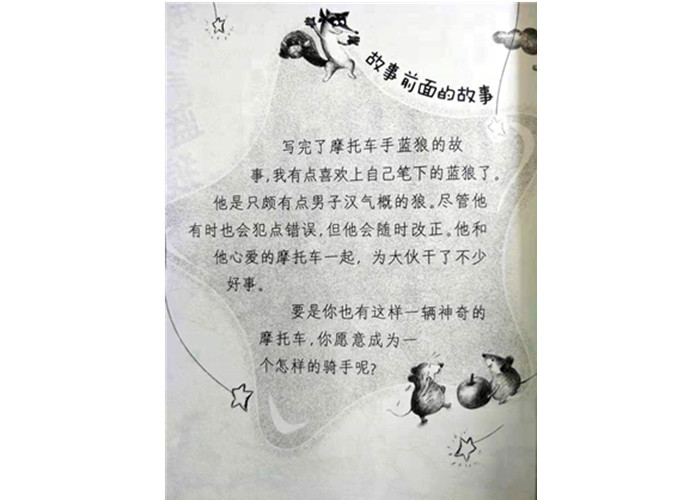 故事前面的故事
写完了摩托车手蓝狼的故
事,我有点喜欢上自己笔下的蓝狼了。
他是只颇有点男子汉气概的狼。尽管他
有时也会犯点错误,但他会随时改正。他和
他心爱的摩托车一起，为大伙干了不少
好事。
要是你也有这样一辆神奇的
摩托车,你愿意成为一
个怎样的骑手呢?